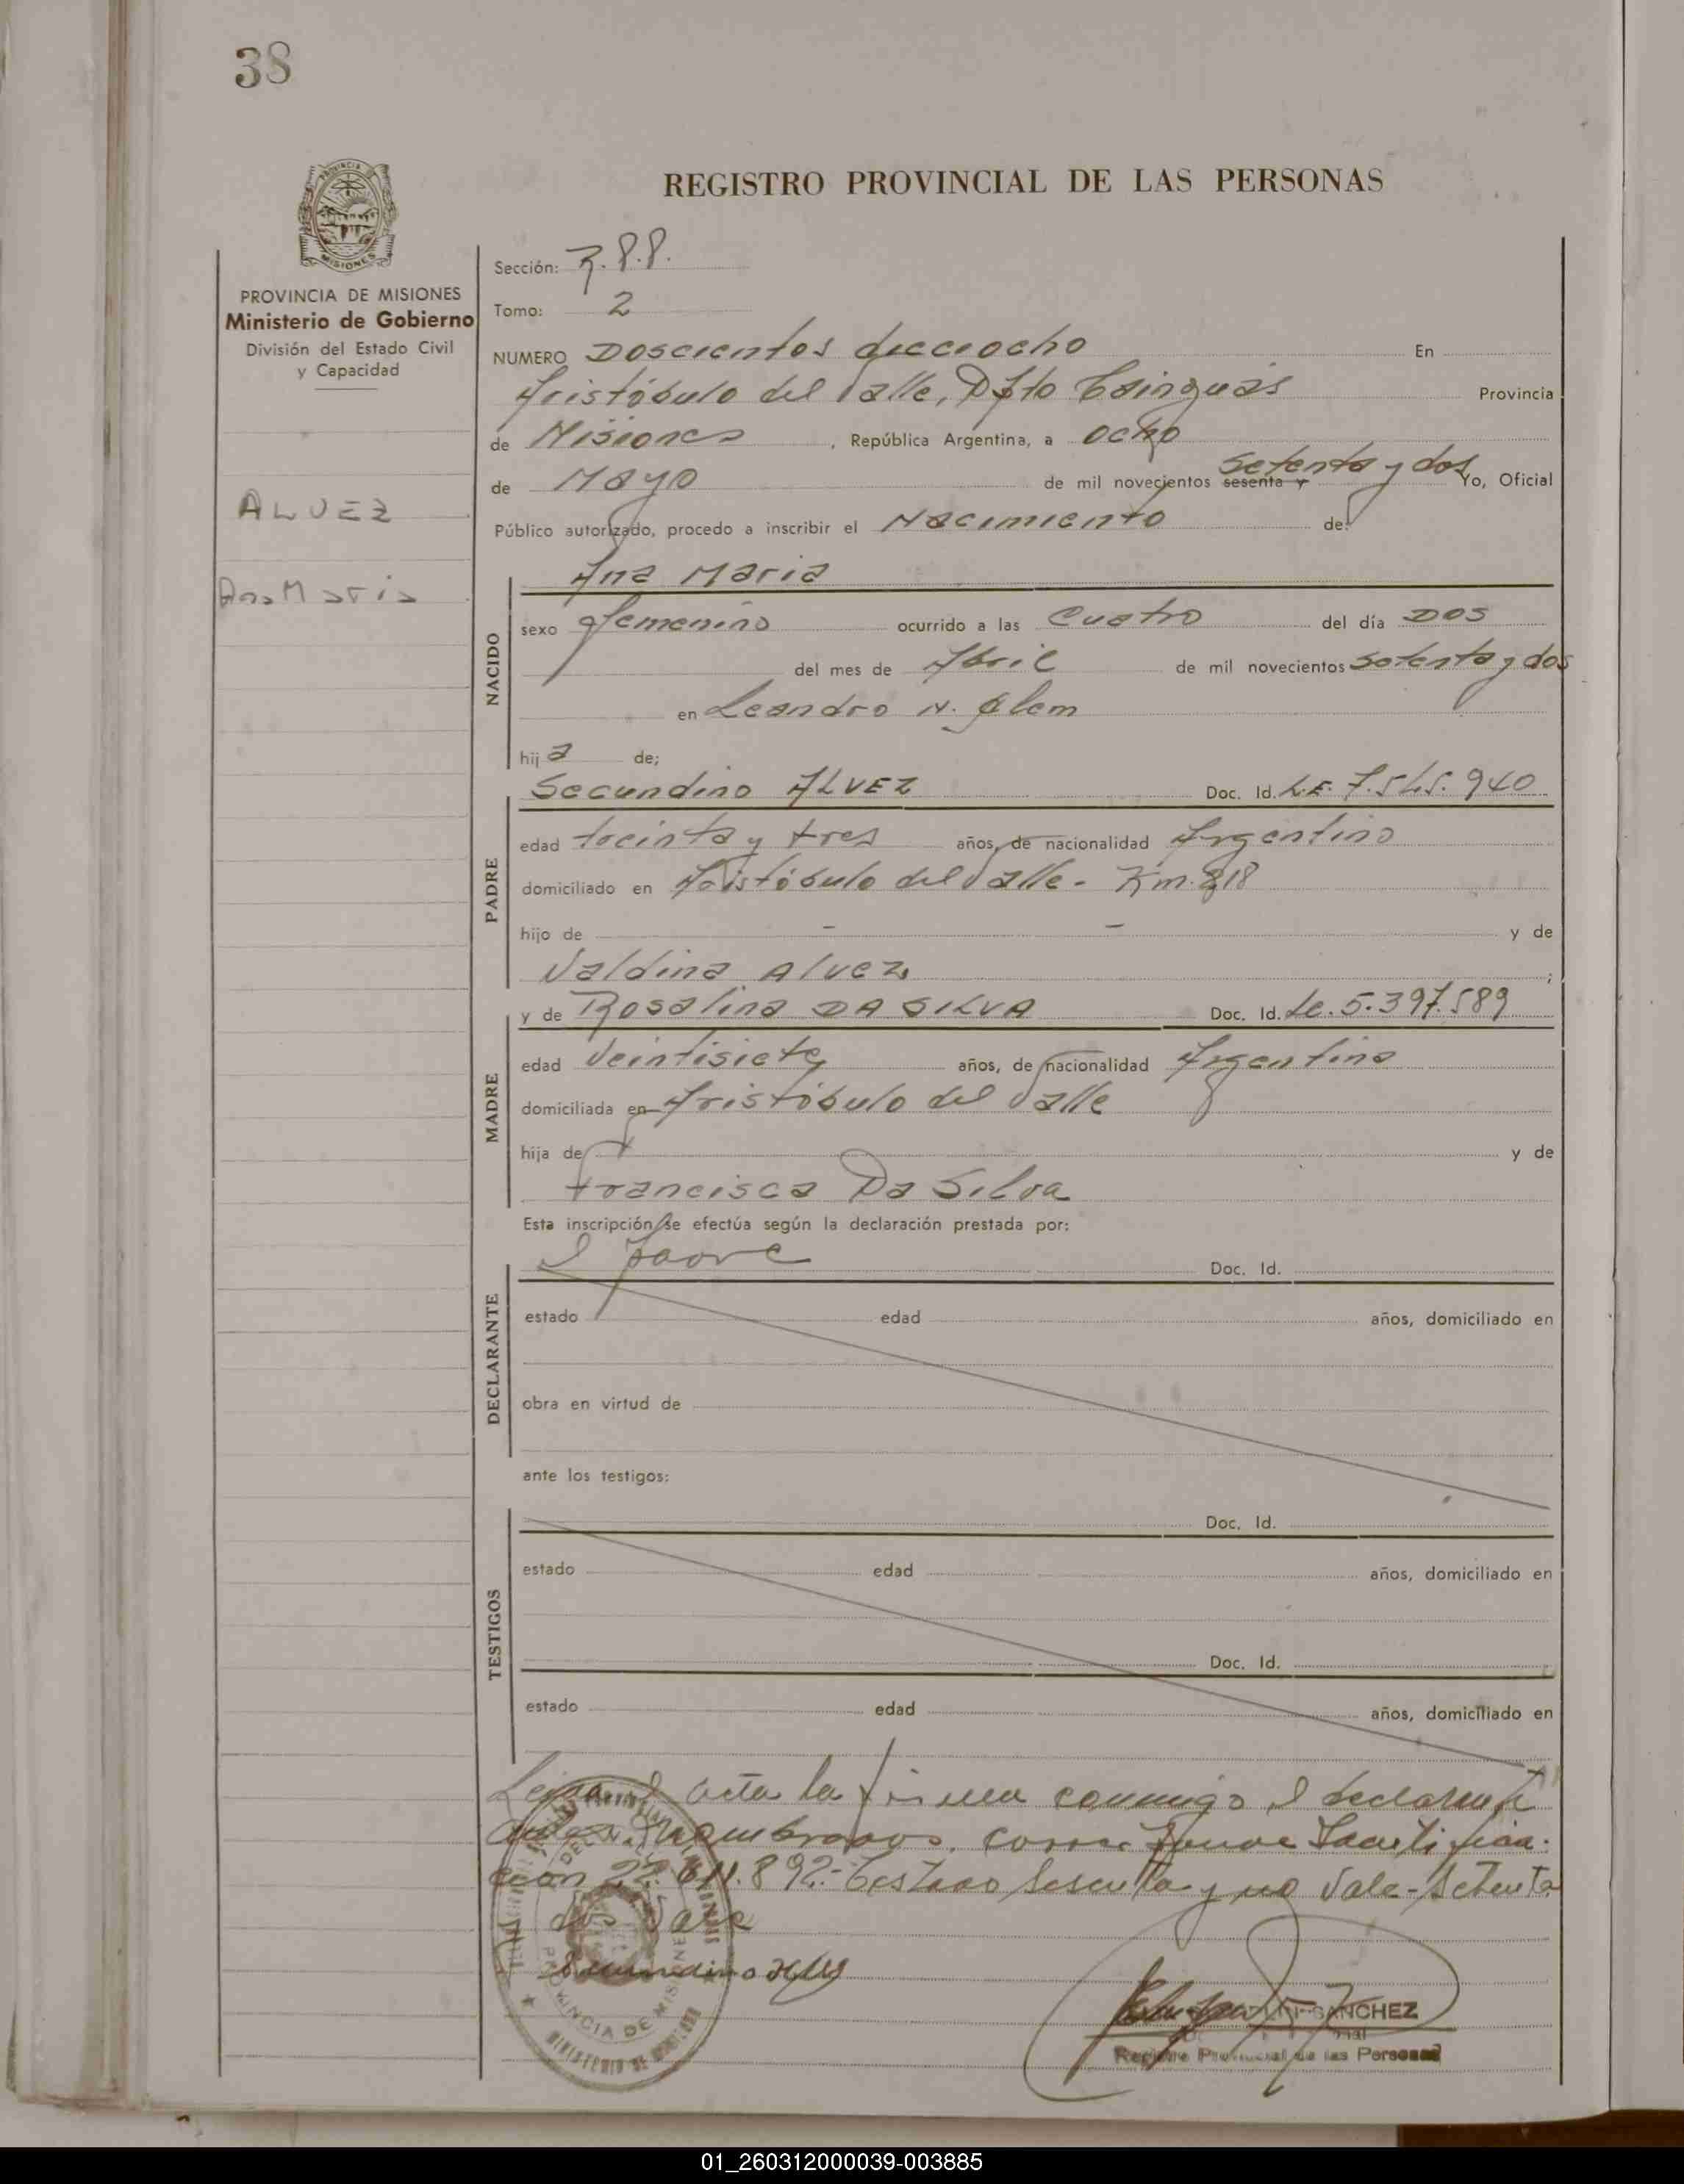 38
REGISTRO PROVINCIAL DE LAS PERSONAS
PROVINCIA
MISIONES
PROVINCIA DE MISIONES
Ministerio de Gobierno
División del Estado Civil
y Capacidad
ALVEZ
Ana Maria
Sección:
Tomo: 2
NUMERO Doscientos dieciocho En
Aristóbulo del Valle, Dpto Cainguás Provincia
de Misiones , República Argentina, a ocho
de Mayo de mil novecientos sesenta y setenta y dos Yo, Oficial
Público autorizado, procedo a inscribir el Nacimiento de:
NACIDO
Ana Maria
sexo femenino ocurrido a las Cuatro del día DOS
del mes de Abril de mil novecientos setenta y dos
en Leandro N. Alem
hij a de;
PADRE
Secundino ALVEZ Doc. Id. L.E. 7.545.940
edad treinta y tres años, de nacionalidad Argentino
domiciliado en Aristóbulo del Valle - Km. 218
hijo de - - y de
Valdina Alvez ;
MADRE
y de Rosalina DA SILVA Doc. Id. Lc. 5.397.589
edad Veintisiete años, de nacionalidad Argentina
domiciliada en Aristóbulo del Valle
hija de y de
francisca Da Silva
Esta inscripción se efectúa según la declaración prestada por:
DECLARANTE
el padre Doc. Id.
estado edad años, domiciliado en
obra en virtud de
ante los testigos:
TESTIGOS
Doc. Id.
estado edad años, domiciliado en
Doc. Id.
estado edad años, domiciliado en
Leida el acta la firma conmigo el declarante
antes nombrados. corresponde Identifica-
cion 22.611.892.- Testado sesenta y no Vale - Setenta
y dos Vale
Secundino
PROVINCIA DE MISIONES
MINISTERIO DE GOBIERNO
SANCHEZ
Registro Provincial de las Personas
01_260312000039-003885